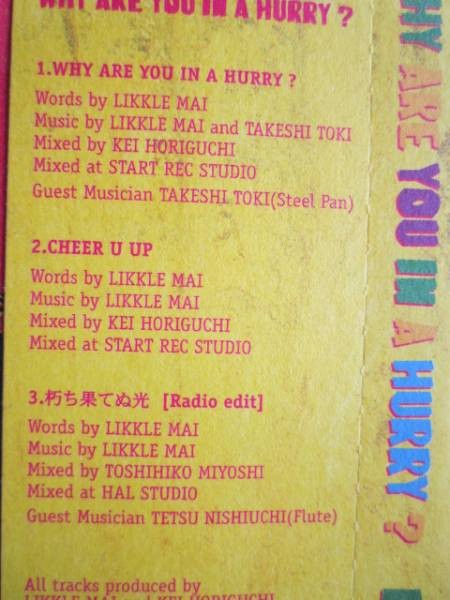 WHY ARE YOU IN A HURRY ?
1.WHY ARE YOU IN A HURRY ?
Words by LIKKLE MAI
Music by LIKKLE MAI and TAKESHI TOKI
Mixed by KEI HORIGUCHI
Mixed at START REC STUDIO
Guest Musician TAKESHI TOKI(Steel Pan)
2.CHEER U UP
Words by LIKKLE MAI
Music by LIKKLE MAI
Mixed by KEI HORIGUCHI
Mixed at START REC STUDIO
3.朽ち果てぬ光 [Radio edit]
Words by LIKKLE MAI
Music by LIKKLE MAI
Mixed by TOSHIHIKO MIYOSHI
Mixed at HAL STUDIO
Guest Musician TETSU NISHIUCHI(Flute)
All tracks produced by
LIKKLE MAI and KEI HORIGUCHI
HY ARE YOU IN A HURRY ?